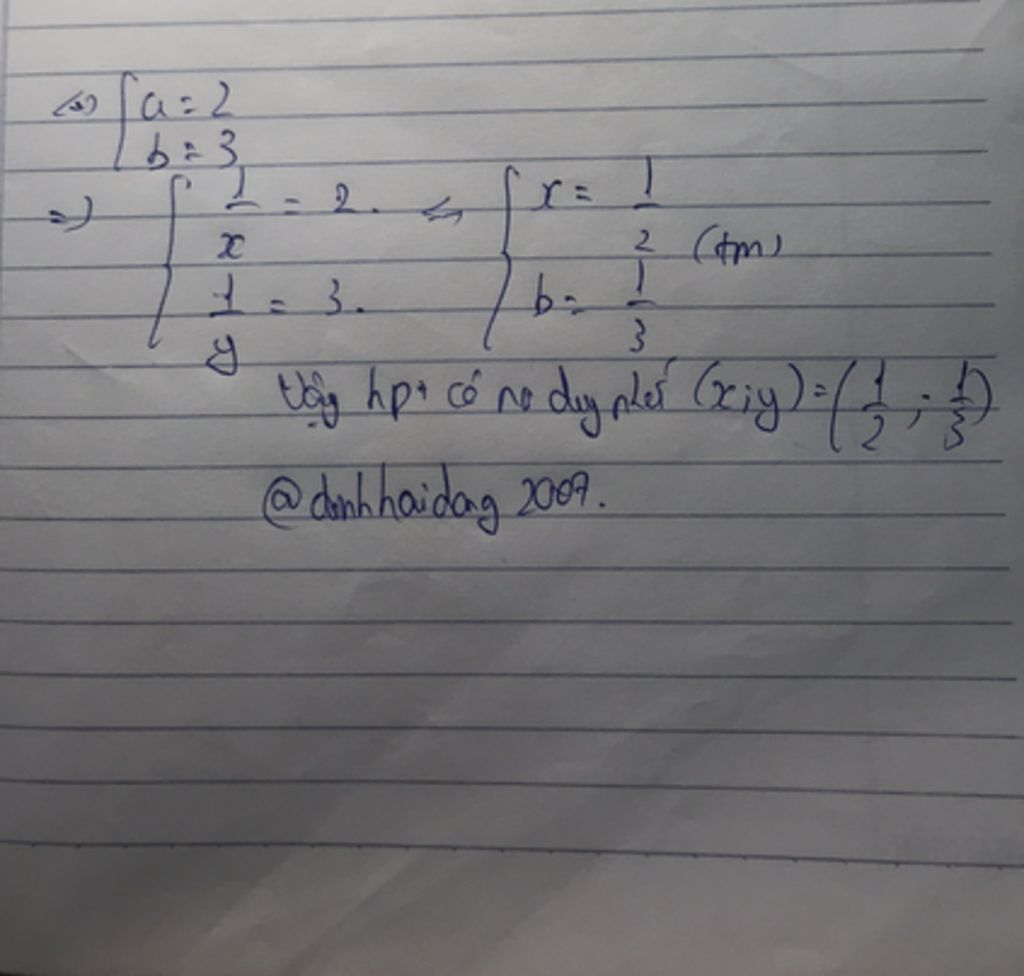 <=> { a = 2
b = 3
=> { 1/x = 2. <=> { x = 1/2 (tm)
1/y = 3. b = 1/3
Vậy hpt có no duy nhất (x;y) = (1/2; 1/3)
@dinhhaidang 2007.